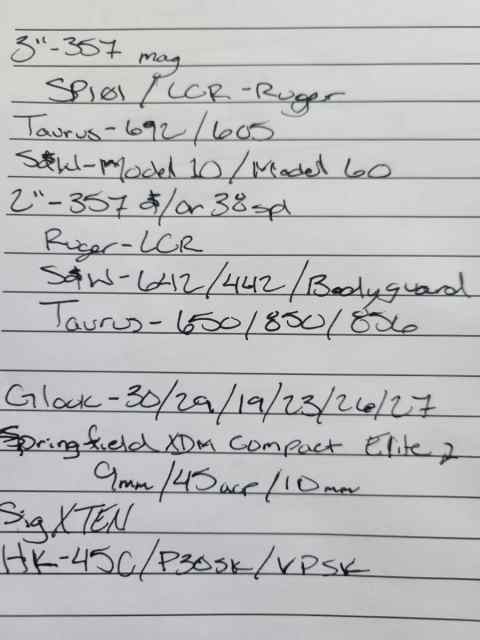 3"-357 mag
SP101 / LCR-Ruger
Taurus-692/605
S&W-Model 10/Model 60
2"-357 &/or 38spl
Ruger-LCR
S&W-642/442/Bodyguard
Taurus-650/850/856
Glock-30/29/19/23/26/27
Springfield XDM Compact Elite
9mm/45acp/10mm
Sig XTEN
HK-45C/P30SK/VPSK